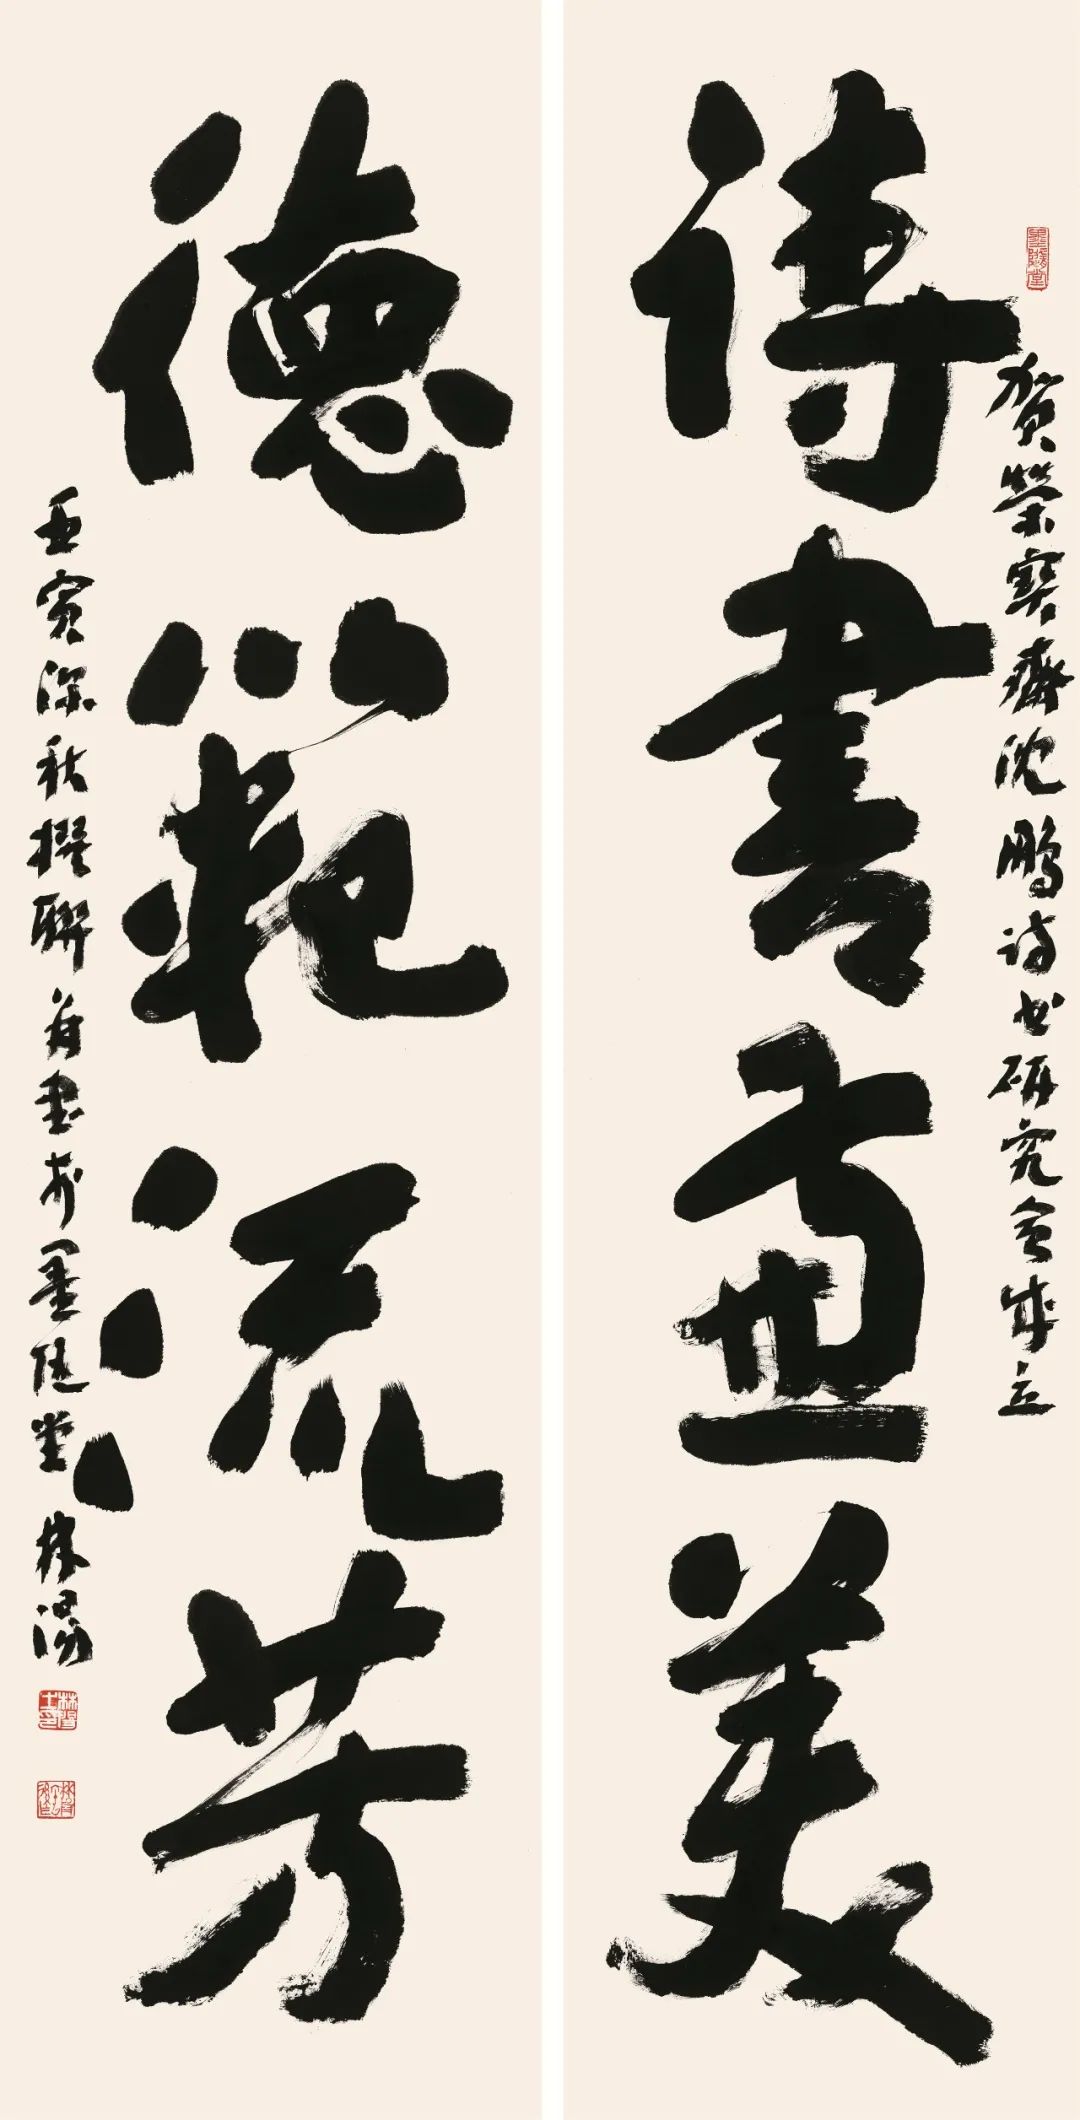 詩書盡美
賀榮寶齋沈鵬诗书研究會成立
德範流芳
壬寅深秋撰聯并書於墨隱堂 林陽